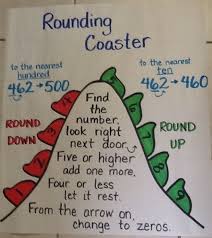 Rounding
Coaster
to the nearest
hundred
462→500
to the nearest
ten
462→460
ROUND
DOWN
ROUND
UP
Find
the
number,
look right
next door.
Five or higher
add one more.
Four or less
let it rest.
From the arrow on,
change to zeros.